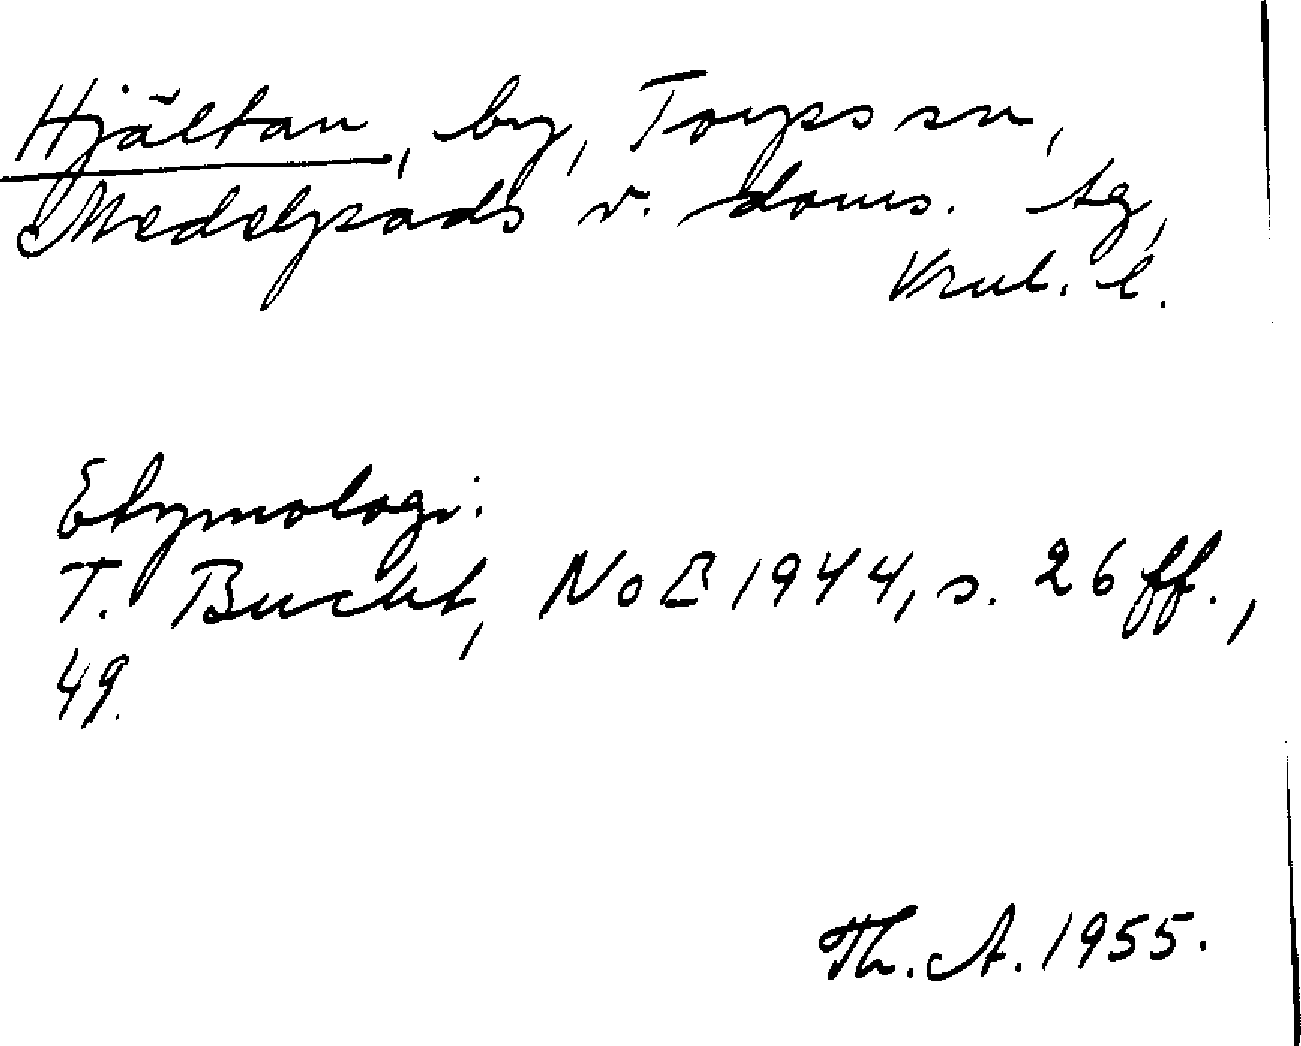 Hjältan, by, Torps sn,
Medelpads v. doms. tg,
Vrnl. l.
Etymologi:
T. Bucht, NoB 1944, s. 26 ff.,
49.
Th. A. 1955.